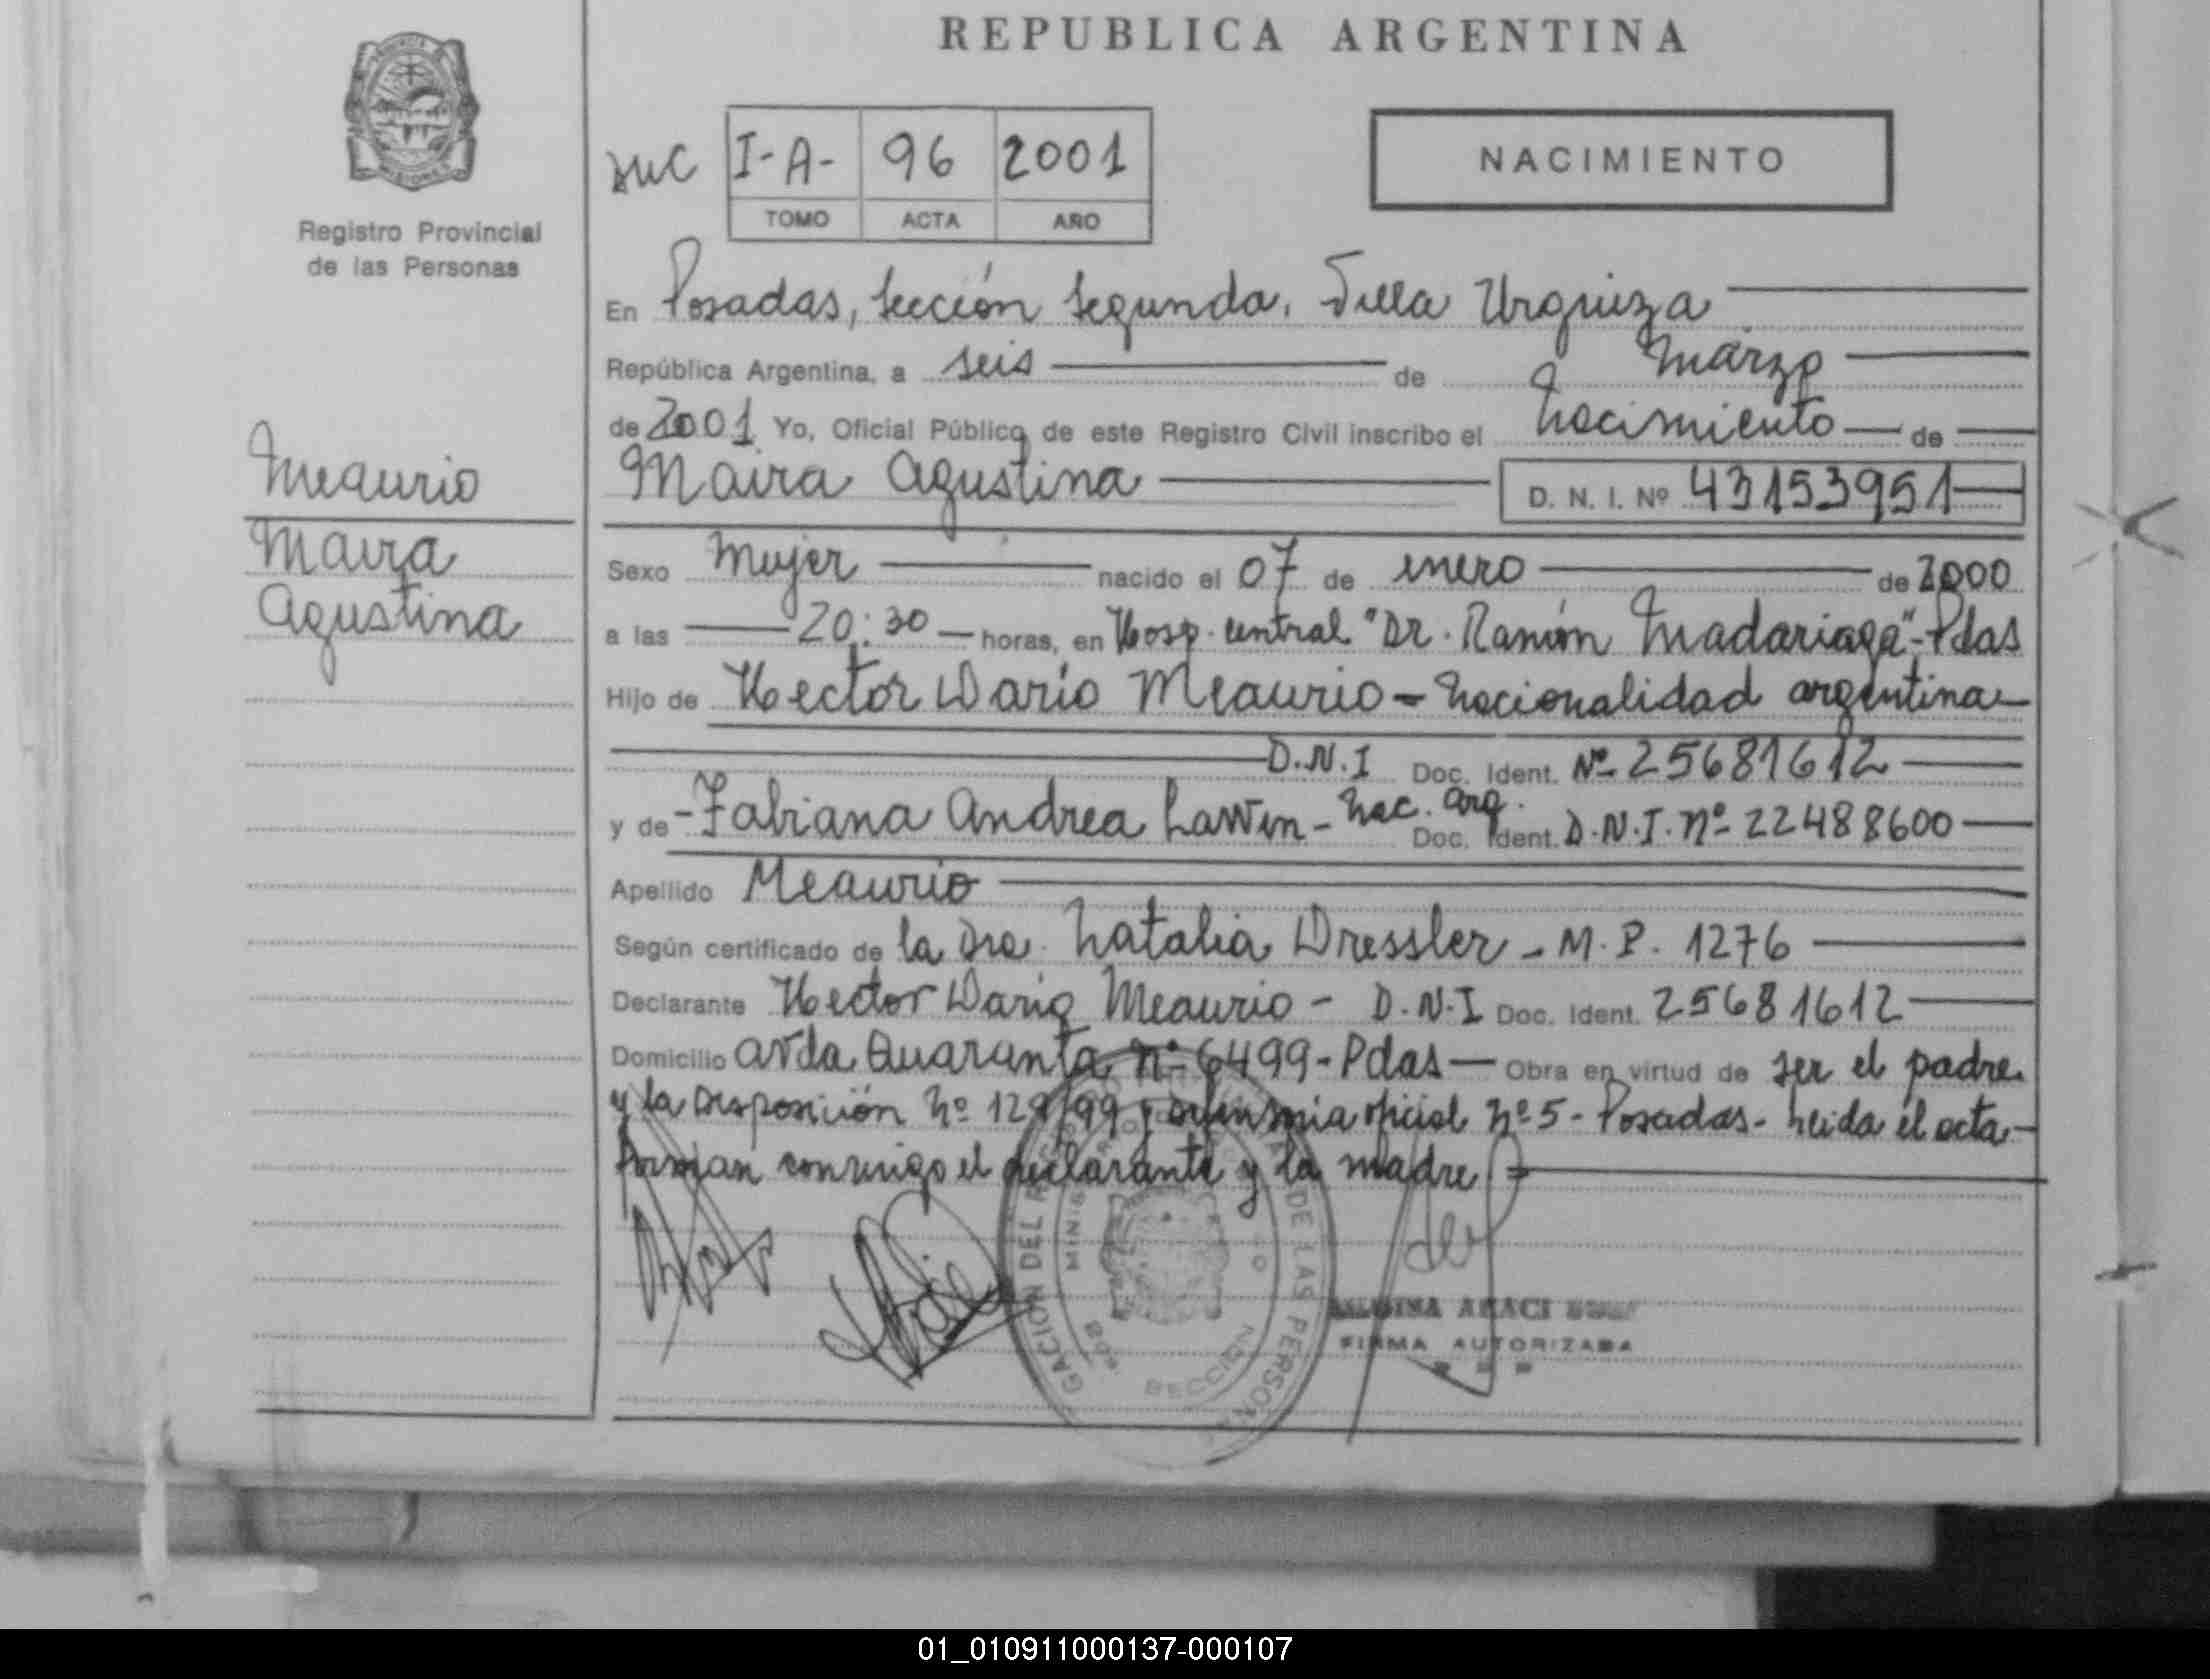 REPUBLICA ARGENTINA
PROVINCIA DE MISIONES
Registro Provincial
de las Personas
I-A- 96 2001
TOMO ACTA AÑO
NACIMIENTO
En Posadas, Sección Segunda, Villa Urquiza
República Argentina, a seis de Marzo
de 2001 Yo, Oficial Público de este Registro Civil inscribo el Nacimiento de
Maira Agustina D. N. I. Nº 43153951
Meaurio
Maira
Agustina
Sexo Mujer nacido el 07 de enero de 2000
a las 20:30 horas, en Hosp. Central "Dr. Ramón Madariaga"-Pdas
Hijo de Hector Darío Meaurio - Nacionalidad argentina
D.N.I Doc. Ident. Nº 25681612
y de - Fabiana Andrea Lawin - Nac. Arg. Doc. Ident. D.N.I. Nº 22488600
Apellido Meaurio
Según certificado de la Dra. Natalia Dressler - M.P. 1276
Declarante Hector Dario Meaurio - D.N.I Doc. Ident. 25681612
Domicilio Avda Quaranta Nº 6499 - Pdas Obra en virtud de ser el padre
y la Disposición Nº 129/99 y oficial Nº 5 - Posadas - Leida el acta
firman conmigo el declarante y la madre
GACION DEL DE LAS PERSONA
SECCION
FIRMA AUTORIZADA
01_010911000137-000107